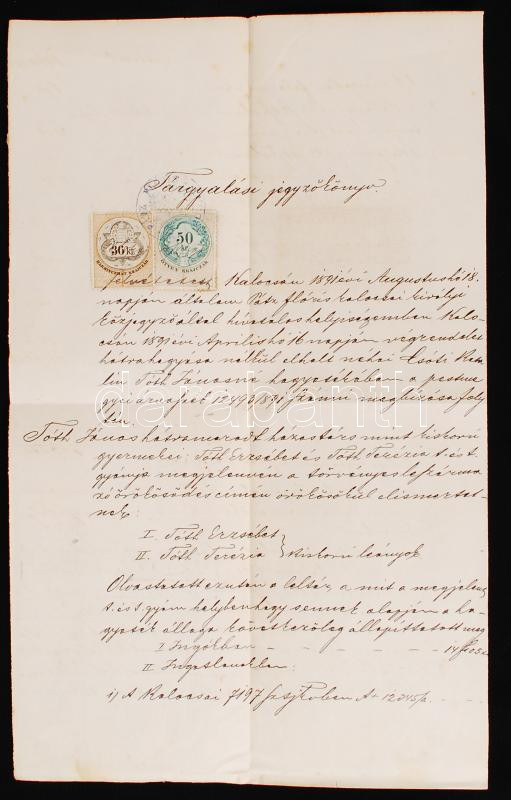 Tárgyalási jegyzőkönyv.
36 kr.
HARMINCZHAT KRAJCZÁR
50 kr.
ÖTVEN KRAJCZÁR
felvétetett Kalocsán 1891 évi Augustus hó 18.
napján általam flóris kalocsai királyi
közjegyző által hivatalos helyiségemben Kalo-
csán 1891 évi Április hó 16 napján végrendelet
hátrahagyása nélkül elhalt néhai Csóti
Tóth Jánosné hagyatékában a pestme-
gyei árvaszék 12493/891 számú megbízása foly-
tán.
Tóth János hátramaradt házastárs mint kiskorú
gyermekei: Tóth Erzsébet és Tóth Terézia t. és t.
gyámja megjelenvén a törvényes leszárma-
zó örökösödés címén örökösökül elismertet-
nek:
I. Tóth Erzsébet
II. Tóth Terézia } kiskorú leányok
Olvastatott ezután a leltár, a mit a megjelent
t. és t. gyám helybenhagy s ennek alapján a ha-
gyaték állaga következőleg állapíttatott meg
I Ingókban - - - - - - 14
II Ingatlanokban:
1) A Kalocsai 7197
darabanth